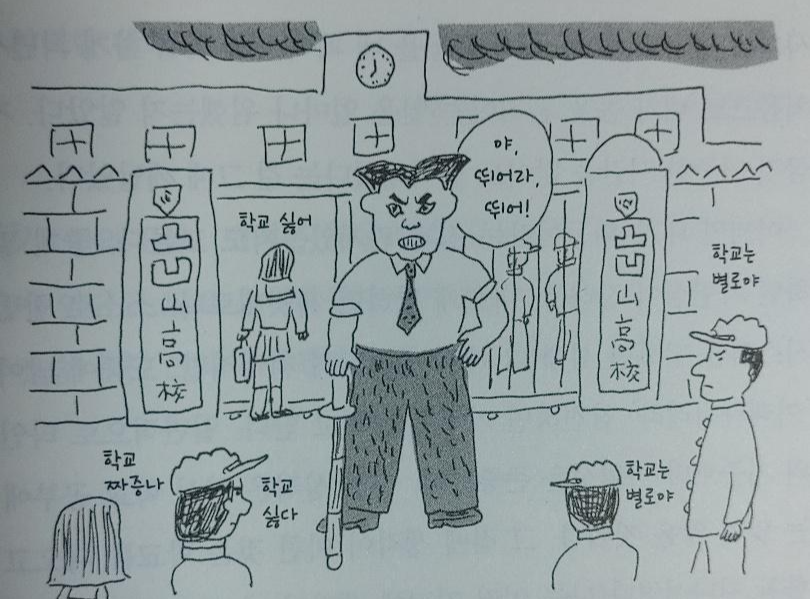 야,
뛰어라,
뛰어!
학교 싫어
凸凹山高校
凸凹山高校
학교는
별로야
학교
짜증나
학교
싫다
학교는
별로야